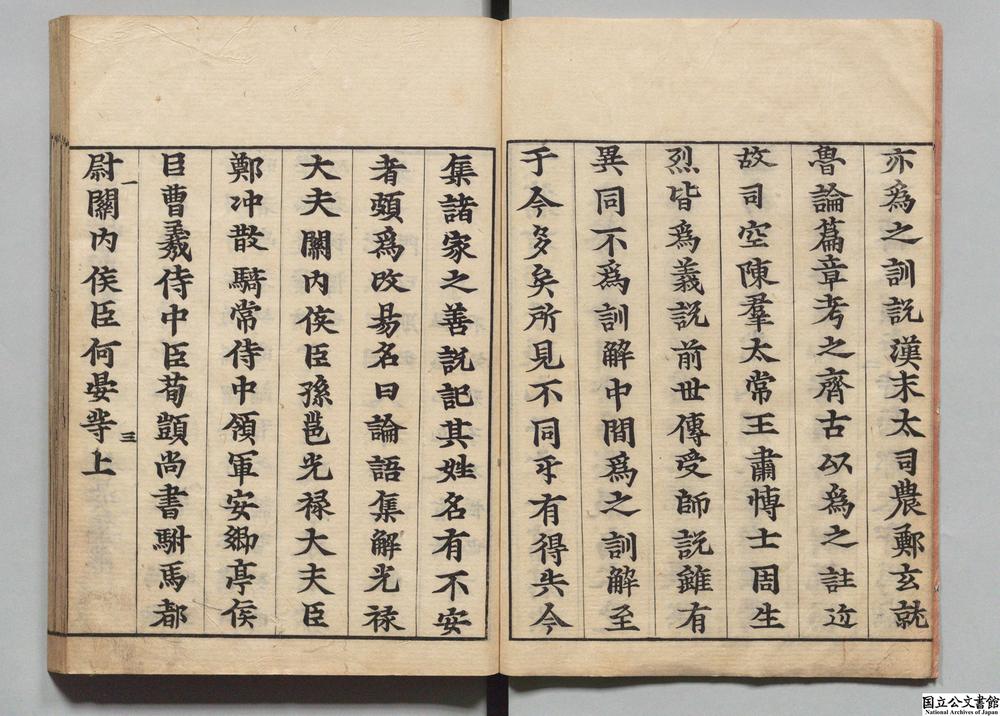 亦爲之訓説漢末太司農鄭玄就
魯論篇章考之齊古以爲之註近
故司空陳羣太常王肅愽士周生
烈皆爲義説前世傳受師説雖有
異同不爲訓解中間爲之訓解至
于今多矣所見不同乎有得失今
集諸家之善説記其姓名有不安
者頗爲改易名曰論語集解光禄
大夫關内侯臣孫邕光禄大夫臣
鄭冲散騎常侍中領軍安鄉亭侯
臣曹羲侍中臣荀顗尚書駙馬都
尉關内侯臣何晏等上
一
三
国立公文書館
National Archives of Japan